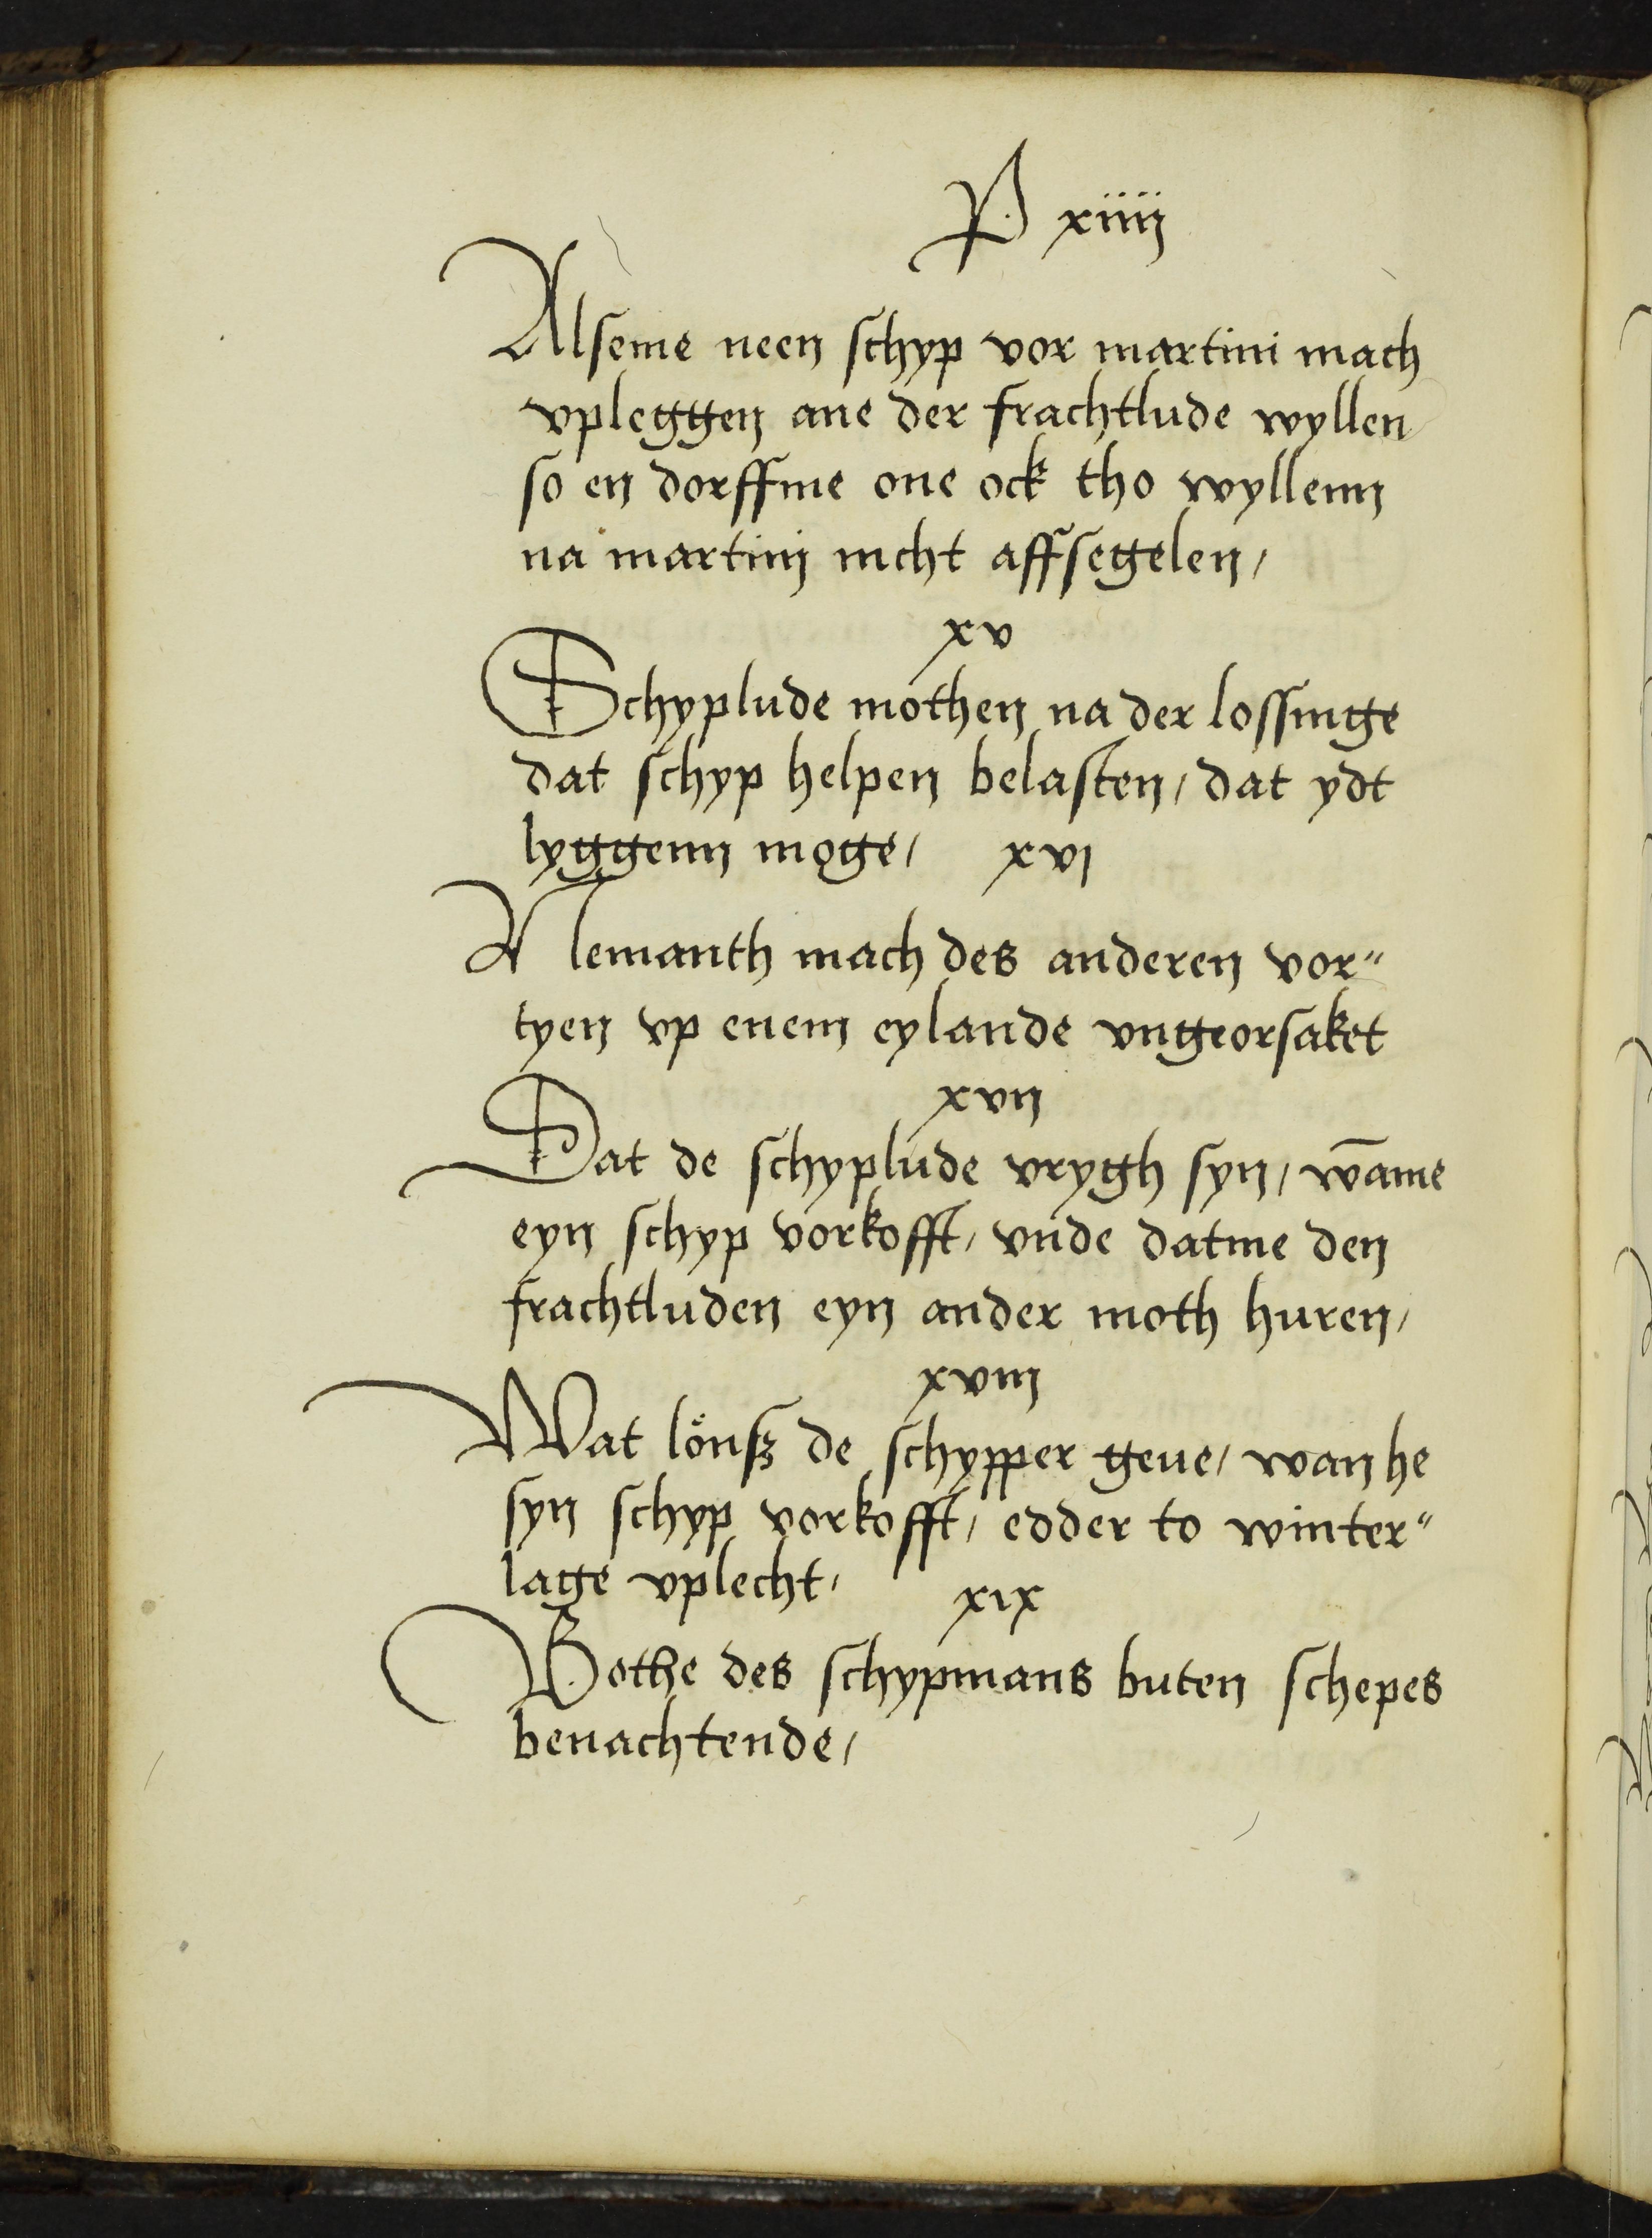 P xiiij
Alseme neen schyp vor martini mach
vpleggen ane der frachtlude wyllen
so en dorffme one ock tho wyllenn
na martinj nicht affsegelen /
xv
Schyplude mothen na der lossinge
dat schyp helpen belasten / dat ydt
lyggenn moge / xvj
Nemanth mach des anderen vor"
tyen vp enem eylande vngeorsaket
xvij
Dat de schyplude vrygh syn / wāme
eyn schyp vorkofft / vnde datme den
frachtluden eyn ander moth huren /
xviij
Wat lönß de schypper geue / wan he
syn schyp vorkofft / edder to winter"
lage vplecht / xix
Bothe des schypmans buten schepes
benachtende /